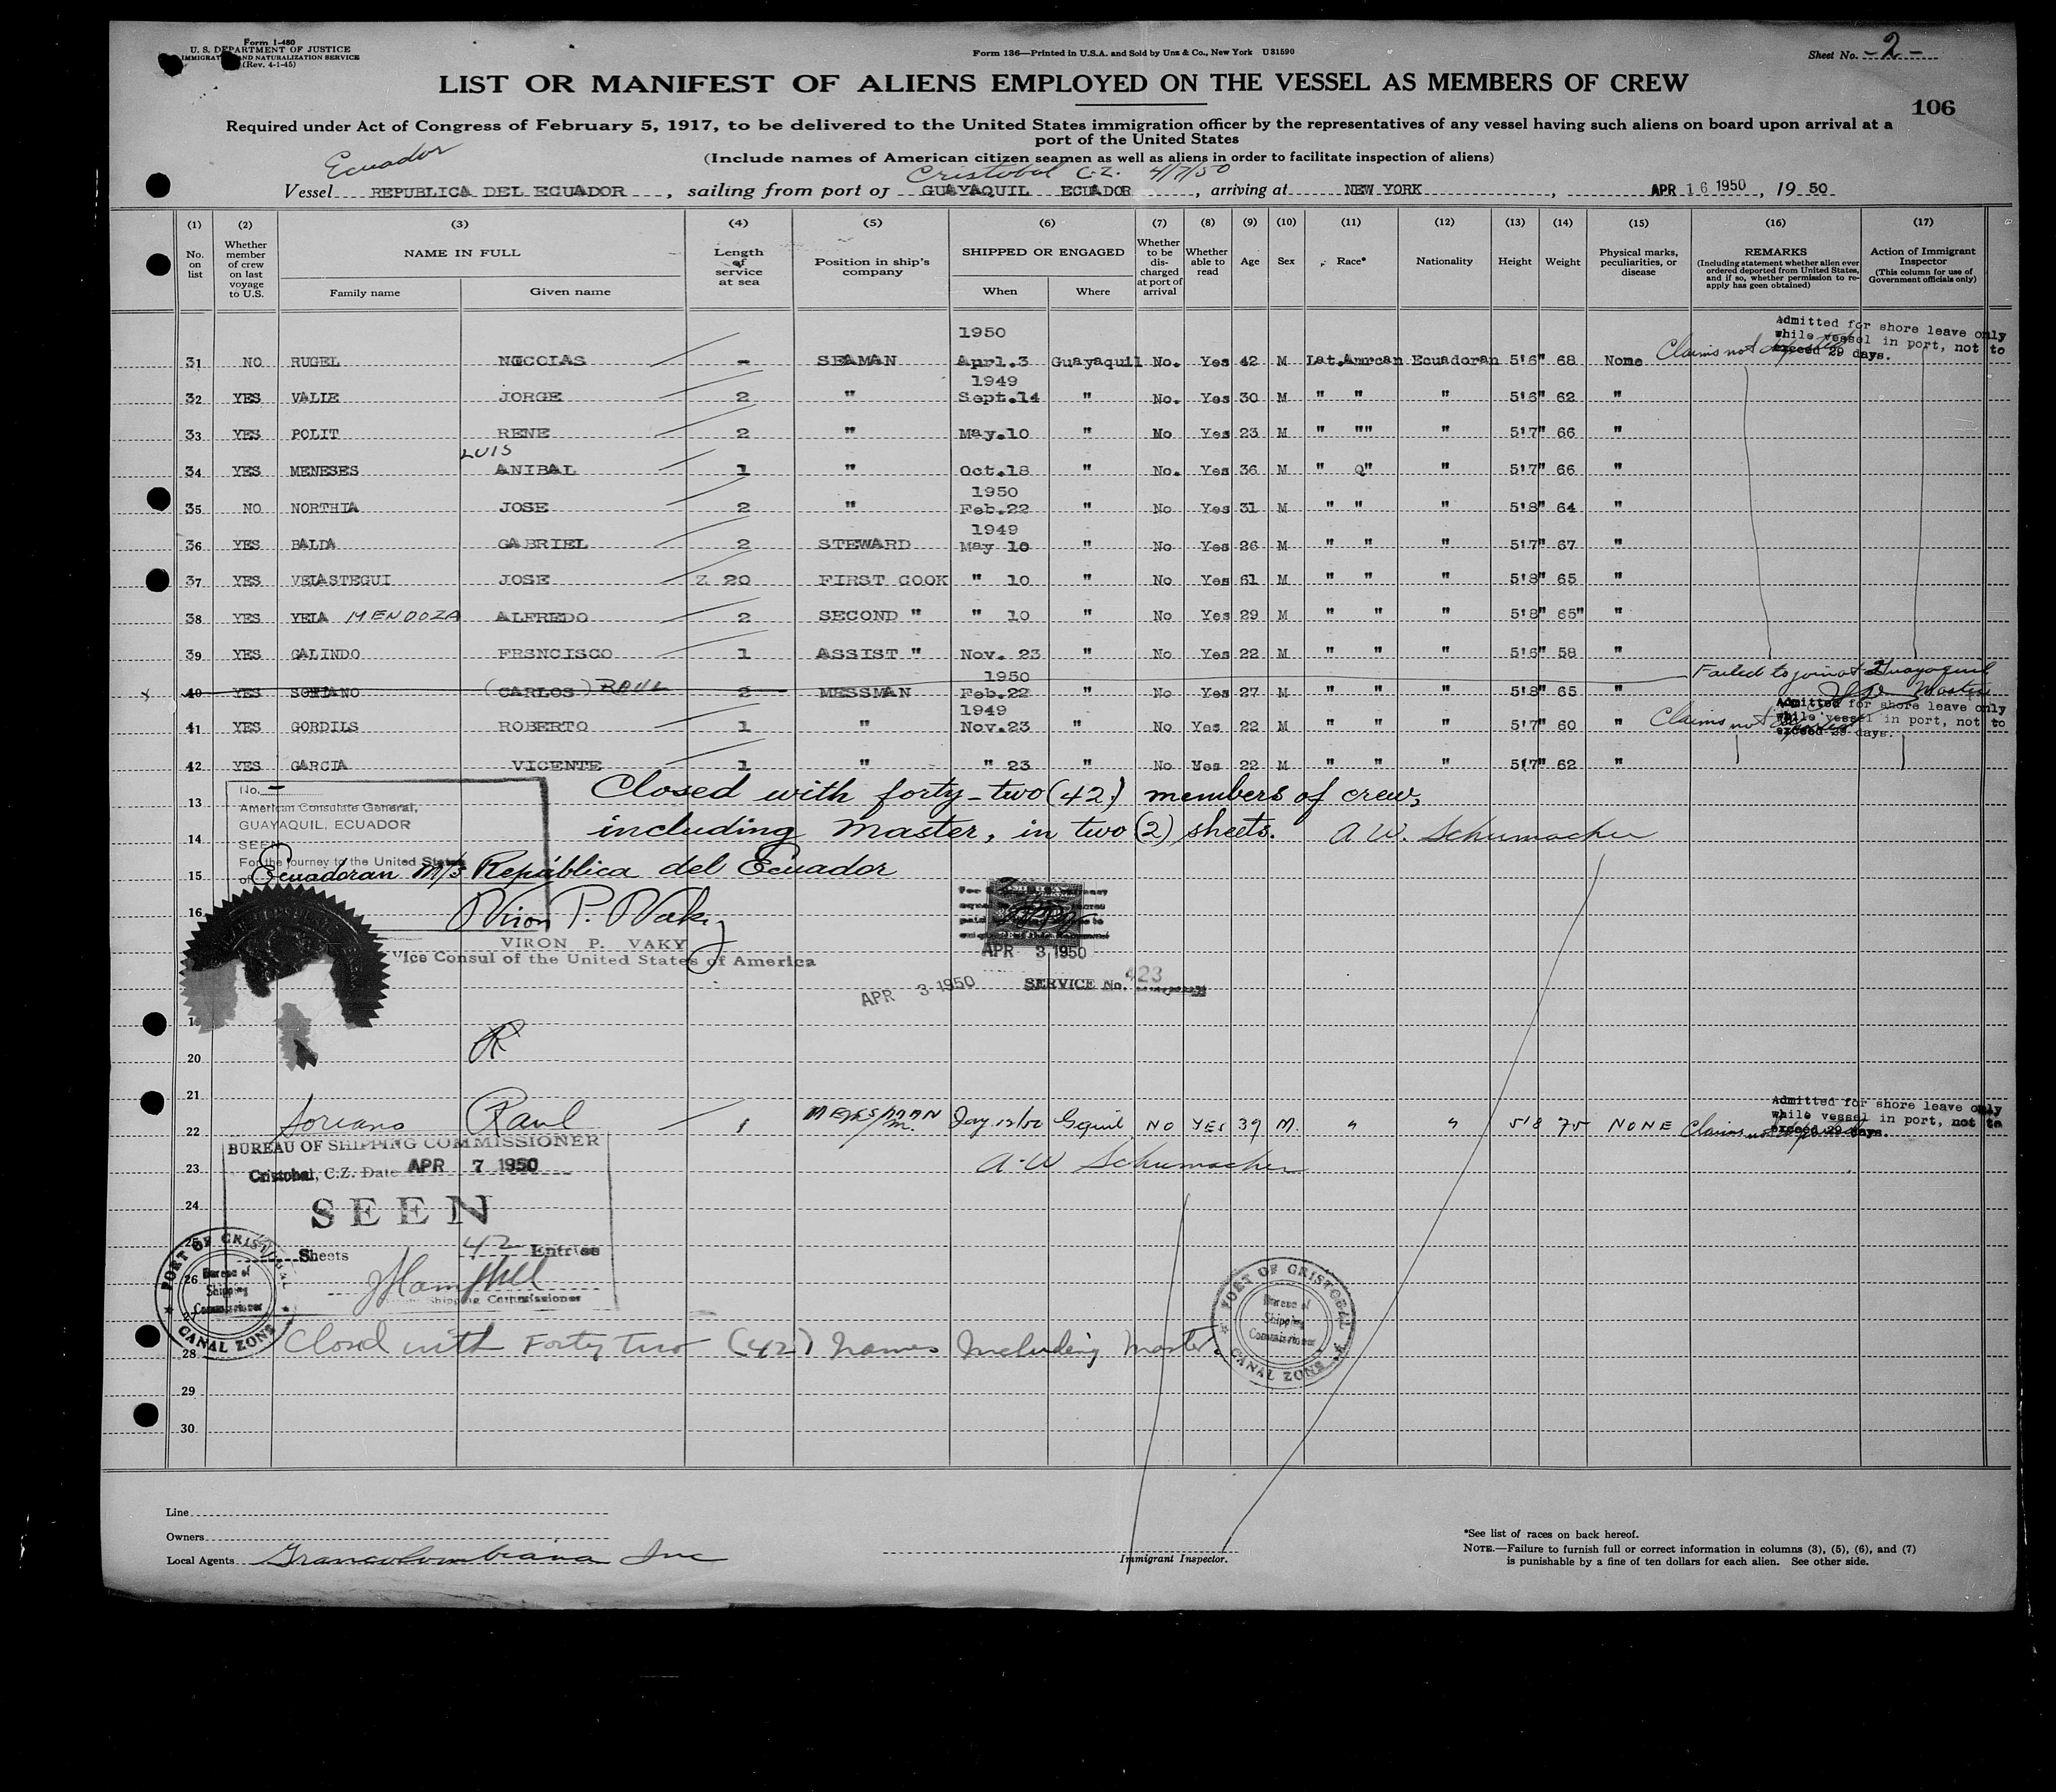 Form I-480
U. S. DEPARTMENT OF JUSTICE
IMMIGRATION AND NATURALIZATION SERVICE
(Rev. 4-1-45)
Form 136—Printed in U.S.A. and Sold by Unz & Co., New York U31590
Sheet No. -2-
LIST OR MANIFEST OF ALIENS EMPLOYED ON THE VESSEL AS MEMBERS OF CREW
106
Required under Act of Congress of February 5, 1917, to be delivered to the United States immigration officer by the representatives of any vessel having such aliens on board upon arrival at a
port of the United States
(Include names of American citizen seamen as well as aliens in order to facilitate inspection of aliens)
Ecuador Cristobal C.Z. 4/7/50
Vessel REPUBLICA DEL ECUADOR, sailing from port of GUAYAQUIL ECUADOR, arriving at NEW YORK, APR 16 1950, 19 50
(1) (2) (3) (4) (5) (6) (7) (8) (9) (10) (11) (12) (13) (14) (15) (16) (17)
No. on list
Whether member of crew on last voyage to U.S.
NAME IN FULL
Family name Given name
Length of service at sea
Position in ship's company
SHIPPED OR ENGAGED
When Where
Whether to be discharged at port of arrival
Whether able to read
Age Sex Race* Nationality Height Weight
Physical marks, peculiarities, or disease
REMARKS
(Including statement whether alien ever ordered deported from United States, and if so, whether permission to re-apply has geen obtained)
Action of Immigrant Inspector
(This column for use of Government officials only)
1950
31 NO RUGEL NICOLAS - SEAMAN Apr1.3 Guayaquil No. Yes 42 M Lat.Amrcan Ecuadoran 5'6" 68 None Claims not deported
Admitted for shore leave only
while vessel in port, not to
exceed 29 days.
1949
32 YES VALLE JORGE 2 " Sept.14 " No. Yes 30 M " " " 5'6" 62 "
33 YES POLIT RENE 2 " May.10 " No Yes 23 M " "" " 5'7" 66 "
LUIS
34 YES MENESES ANIBAL 1 " Oct.18 " No. Yes 36 M " Q" " 5'7" 66 "
1950
35 NO NORTHIA JOSE 2 " Feb.22 " No Yes 31 M " " " 5'8" 64 "
1949
36 YES BALDA GABRIEL 2 STEWARD May 10 " No Yes 26 M " " " 5'7" 67 "
37 YES VELASTEGUI JOSE Z 20 FIRST COOK " 10 " No Yes 61 M " " " 5'8" 65 "
38 YES VELA MENDOZA ALFREDO 2 SECOND " " 10 " No Yes 29 M " " " 5'8" 65" "
39 YES GALINDO FRSNCISCO 1 ASSIST " Nov. 23 " No Yes 22 M " " " 5'6" 58 "
1950
x 40 YES SORIANO (CARLOS) RAUL 2 MESSMAN Feb.22 " No Yes 27 M " " " 5'8" 65 " Failed to join at Guayaquil
Master
1949
41 YES GORDILS ROBERTO 1 " Nov.23 " No Yes 22 M " " " 5'7" 60 " Claims not deported
Admitted for shore leave only
while vessel in port, not to
exceed 29 days.
42 YES GARCIA VICENTE 1 " " 23 " No Yes 22 M " " " 5'7" 62 "
No. -
American Consulate General,
GUAYAQUIL, ECUADOR
SEEN
For the journey to the United States
of
13 Closed with forty-two (42) members of crew,
14 including Master, in two (2) sheets. A W. Schumacher
15 Ecuadoran M/S República del Ecuador
16 Viron P. Vaky
VIRON P. VAKY
Vice Consul of the United States of America
APR 3 1950
APR 3 1950
SERVICE No. 423
R
20
21
22 Soriano Raul 1 MESSMAN Jan 12/50 Gquil NO YES 39 M. " " 5'8 75 NONE Claims not deported
Admitted for shore leave only
while vessel in port, not to
exceed 29 days.
23 A. W Schumacher
BUREAU OF SHIPPING COMMISSIONER
Cristobal, C.Z. Date APR 7 1950
24
SEEN
25
Sheets 42 Entries
26
Shipping Commissioner
27
PORT OF CRISTOBAL
Bureau of
Shipping
Commissioner
CANAL ZONE
28 Closed with Forty two (42) names Including Master.
PORT OF CRISTOBAL
Bureau of
Shipping
Commissioner
CANAL ZONE
29
30
Line
Owners
Local Agents Grancolombiana Inc
Immigrant Inspector.
*See list of races on back hereof.
NOTE.—Failure to furnish full or correct information in columns (3), (5), (6), and (7)
is punishable by a fine of ten dollars for each alien. See other side.